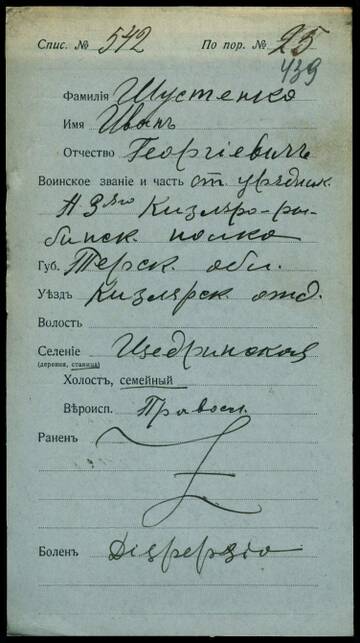 Спис. № 542 По пор. № 25
439
Фамилія Шустенко
Имя Иванъ
Отчество Георгіевичъ
Воинское званіе и часть ст. урядник.
3го Кизляро-
полка
Губ. Терск. обл.
Уѣздъ Кизлярск. отд.
Волость
Селеніе Щедринская
(деревня, станица)
Холостъ, семейный
Вѣроисп. Правосл.
Раненъ
Боленъ